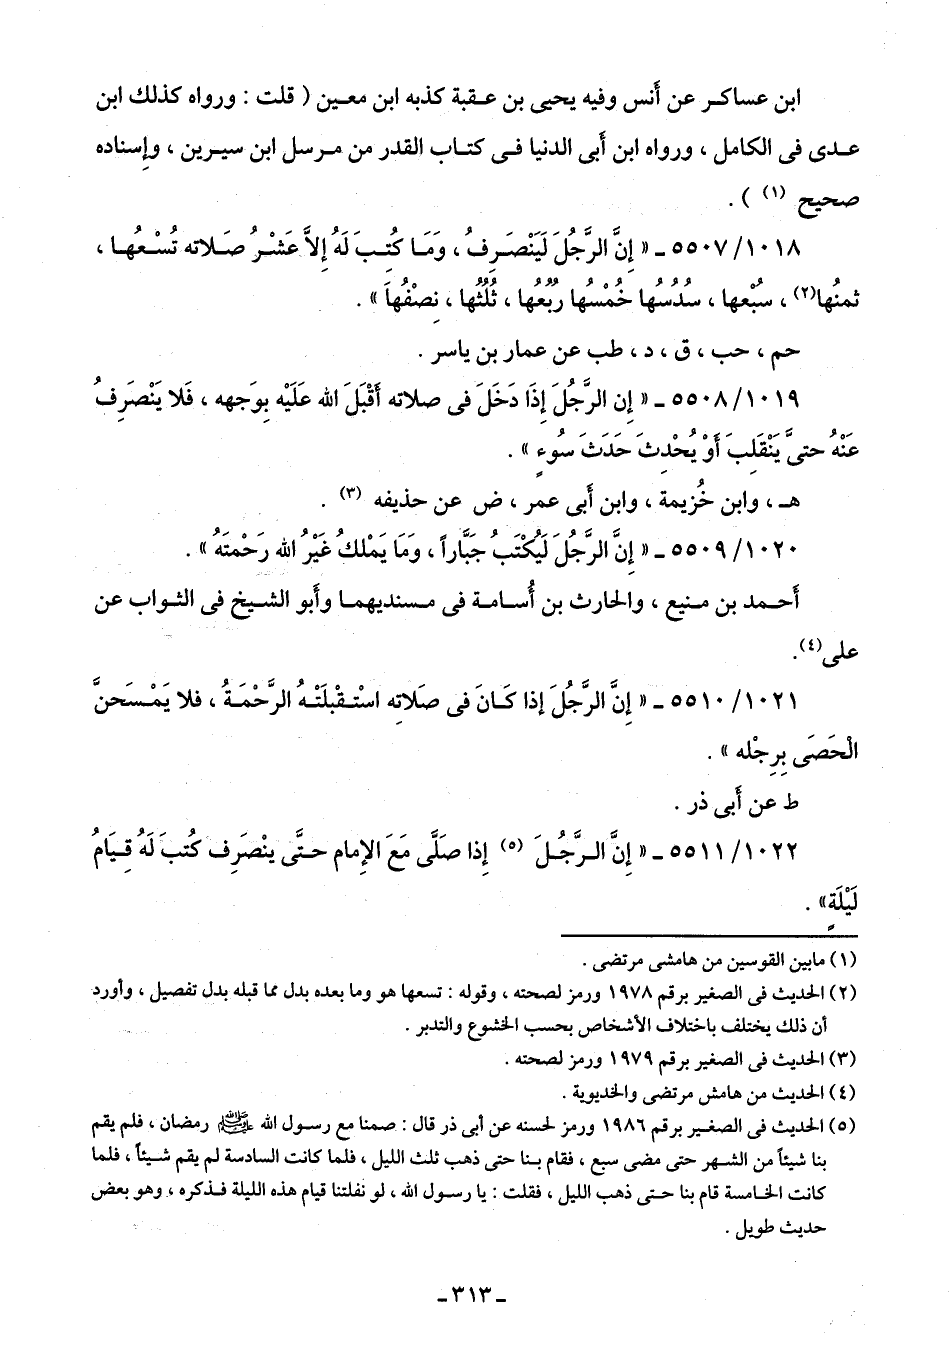 ابن عساكر عن أَنس وفيه يحيى بن عقبة كذبه ابن معين ( قلت : ورواه كذلك ابن
عدى فى الكامل ، ورواه ابن أَبى الدنيا فى كتاب القدر من مرسل ابن سيرين ، وإِسناده
صحيح (١) ) .
٥٥٠٧/١٠١٨ ـ « إِنَّ الرَّجُلَ لَيَنْصَرِفُ ، وَمَا كُتِبَ لَهُ إِلاَّ عَشْرُ صَلاته تُسْعُها ،
ثمنُها(٢) ، سُبُعها ، سدُسُها خُمْسُها ربُعُها ، ثُلُثُها ، نصْفُهَا » .
حم ، حب ، ق ، د ، طب عن عمار بن ياسر .
٥٥٠٨/١٠١٩ ـ « إِن الرَّجُلَ إِذَا دَخَلَ فى صلاته أَقْبَلَ الله عَلَيْه بوَجهه ، فَلا يَنْصَرِفُ
عَنْهُ حتىَّ يَنْقَلِبَ أَوْ يُحْدِثَ حَدَثَ سُوءٍ » .
هـ ، وابن خُزيمة ، وابن أَبى عمر ، ض عن حذيفه (٣) .
٥٥٠٩/١٠٢٠ ـ « إِنَّ الرَّجُلَ لَيُكْتَبُ جَبَّاراً ، وَمَا يَمْلكُ غَيْرُ الله رَحْمتَهُ » .
أَحمد بن منيع ، والحارث بن أُسامة فى مسنديهما وأَبو الشيخ فى الثواب عن
على(٤).
٥٥١٠/١٠٢١ ـ « إِنَّ الرَّجُلَ إذا كَانَ فى صلَاتِه اسْتقْبلَتْهُ الرَّحْمَةُ ، فلا يَمْسَحنَّ
الْحَصَى بِرِجْله » .
ط عن أَبى ذر .
٥٥١١/١٠٢٢ ـ « إِنَّ الرَّجُلَ (٥) إِذا صَلَّى مَعَ الإِمام حتَّى ينْصَرِف كُتبَ لَهُ قِيَامُ
لَيْلَةٍ» .
(١) مابين القوسين من هامشى مرتضى .
(٢) الحديث فى الصغير برقم ١٩٧٨ ورمز لصحته ، وقوله : تسعها هو وما بعده بدل مما قبله بدل تفصيل ، وأورد
أن ذلك يختلف باختلاف الأشخاص بحسب الخشوع والتدبر .
(٣) الحديث فى الصغير برقم ١٩٧٩ ورمز لصحته .
(٤) الحديث من هامش مرتضى والخديوية .
(٥) الحديث فى الصغير برقم ١٩٨٦ ورمز لحسنه عن أبى ذر قال : صمنا مع رسول الله ﷺ رمضان ، فلم يقم
بنا شيئاً من الشهر حتى مضى سبع ، فقام بنا حتى ذهب ثلث الليل ، فلما كانت السادسة لم يقم شيئاً ، فلما
كانت الخامسة قام بنا حتى ذهب الليل ، فقلت : يا رسول الله ، لو نفلتنا قيام هذه الليلة فذكره ، وهو بعض
حديث طويل .
ـ ٣١٣ ـ